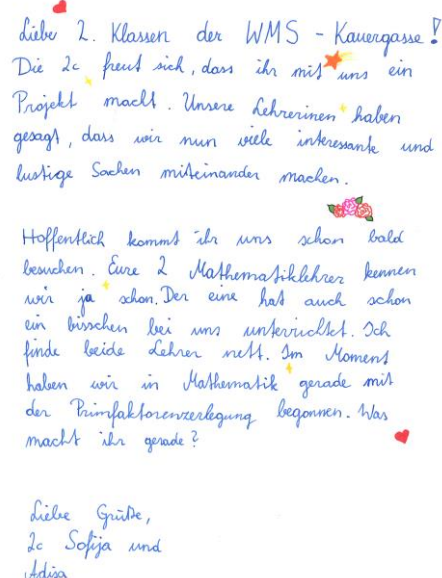 Liebe 2. Klassen der WMS - Kauergasse!
Die 2c freut sich, dass ihr mit uns ein
Projekt macht. Unsere Lehrerinen haben
gesagt, dass wir nun viele interessante und
lustige Sachen miteinander machen.
Hoffentlich kommt ihr uns schon bald
besuchen. Eure 2 Mathematiklehrer kennen
wir ja schon. Der eine hat auch schon
ein bisschen bei uns unterrichtet. Ich
finde beide Lehrer nett. Im Moment
haben wir in Mathematik gerade mit
der Primfaktorenzerlegung begonnen. Was
macht ihr gerade?
Liebe Grüße,
2c Sofija und
Adisa